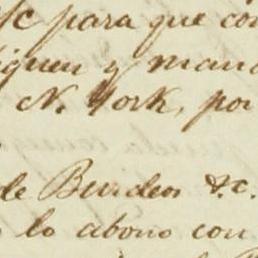 para que con
y mand
N. York, por
de Burdeos &c.
lo abono con